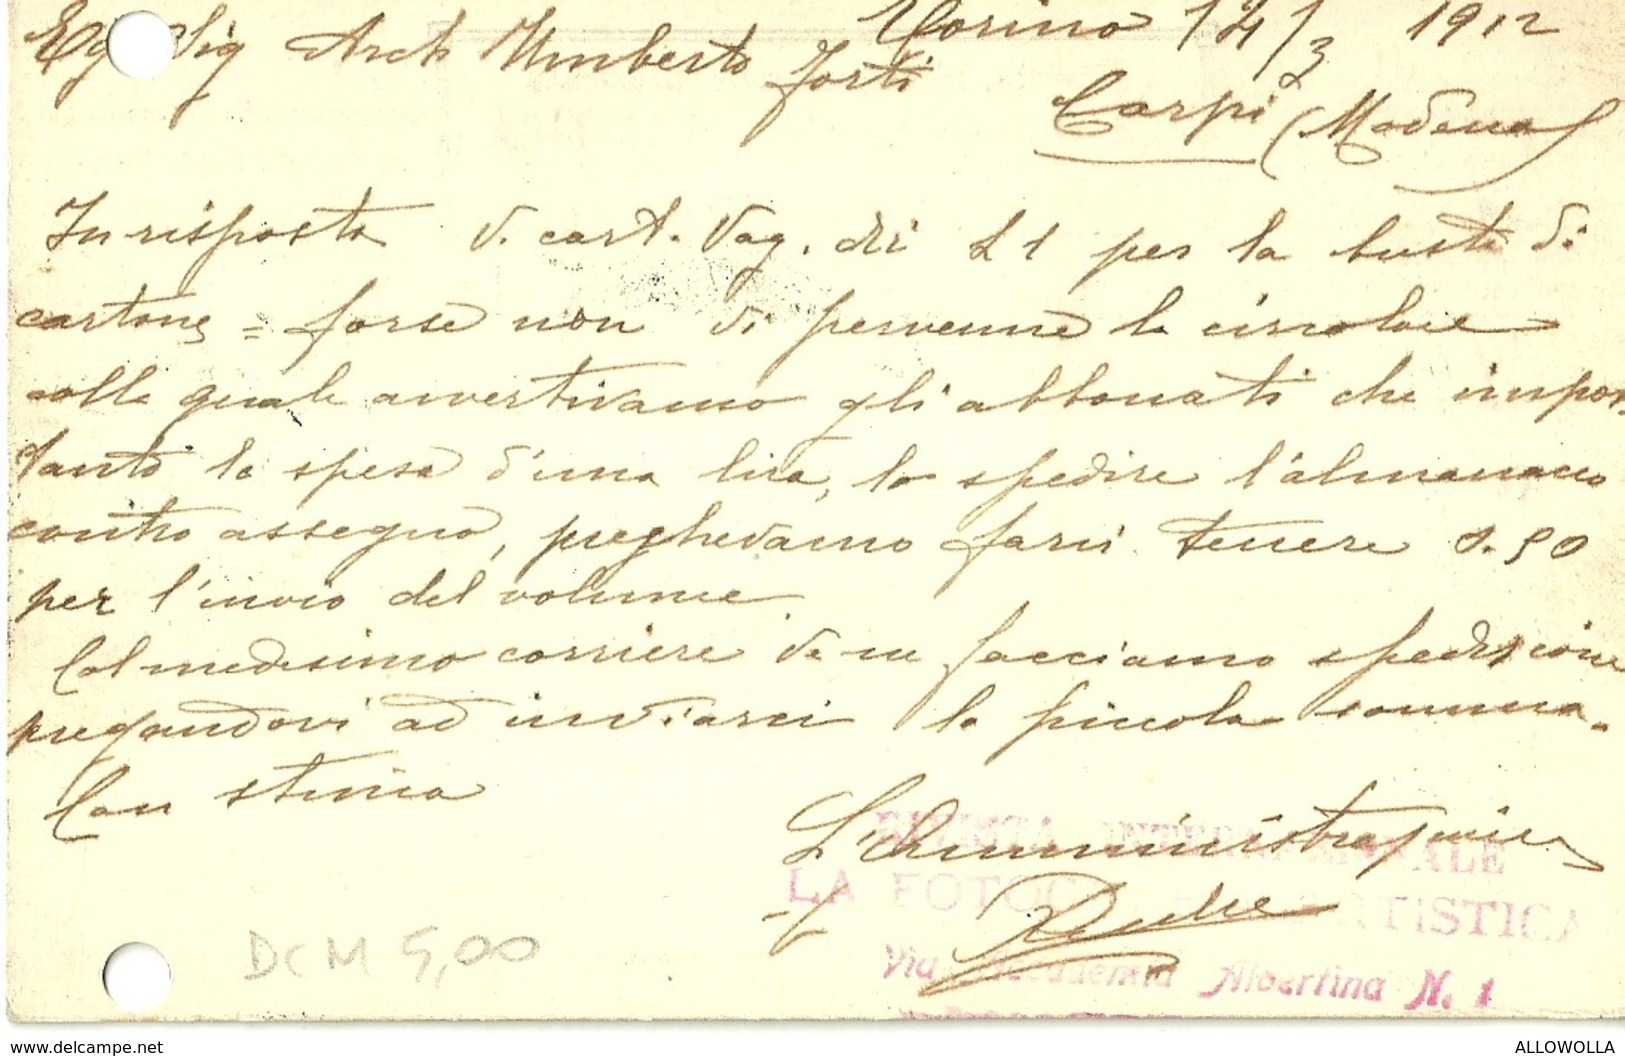 Torino 14/3 1912
Eg Sig Arch Umberto Forti
Carpi (Modena)
In risposta V. cart. Vag. di L 1 per la busta di
cartone = forse non Vi pervenne la circolare
colla quale avvertivamo gli abbonati che impor
tando la spesa d'una lira, lo spedire l'almanacco
contro assegno, preghevamo farci tenere 0.50
per l'invio del volume.
Col medesimo corriere Ve ne facciamo spedizione
pregandovi ad inviarci la piccola somma.
Con stima
L'Amministrazione
RIVISTA INTERNAZIONALE
LA FOTOGRAFIA ARTISTICA
Via Accademia Albertina N. 1
DCM 5,00
www.delcampe.net
ALLOWOLLA